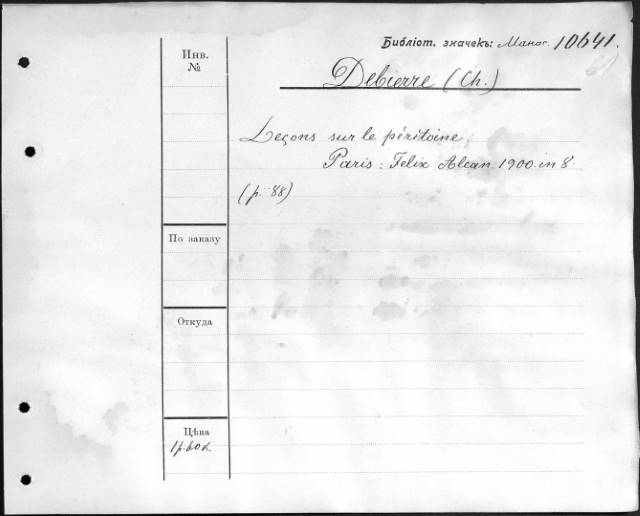 Библіот. значекъ: Манас. 10641.
61
Инв.
№
Debierre (Ch.)
Leçons sur le péritoine
Paris: Felix Alcan. 1900. in 8°
(p. 88)
По заказу
Откуда
Цѣна
1р. 60к